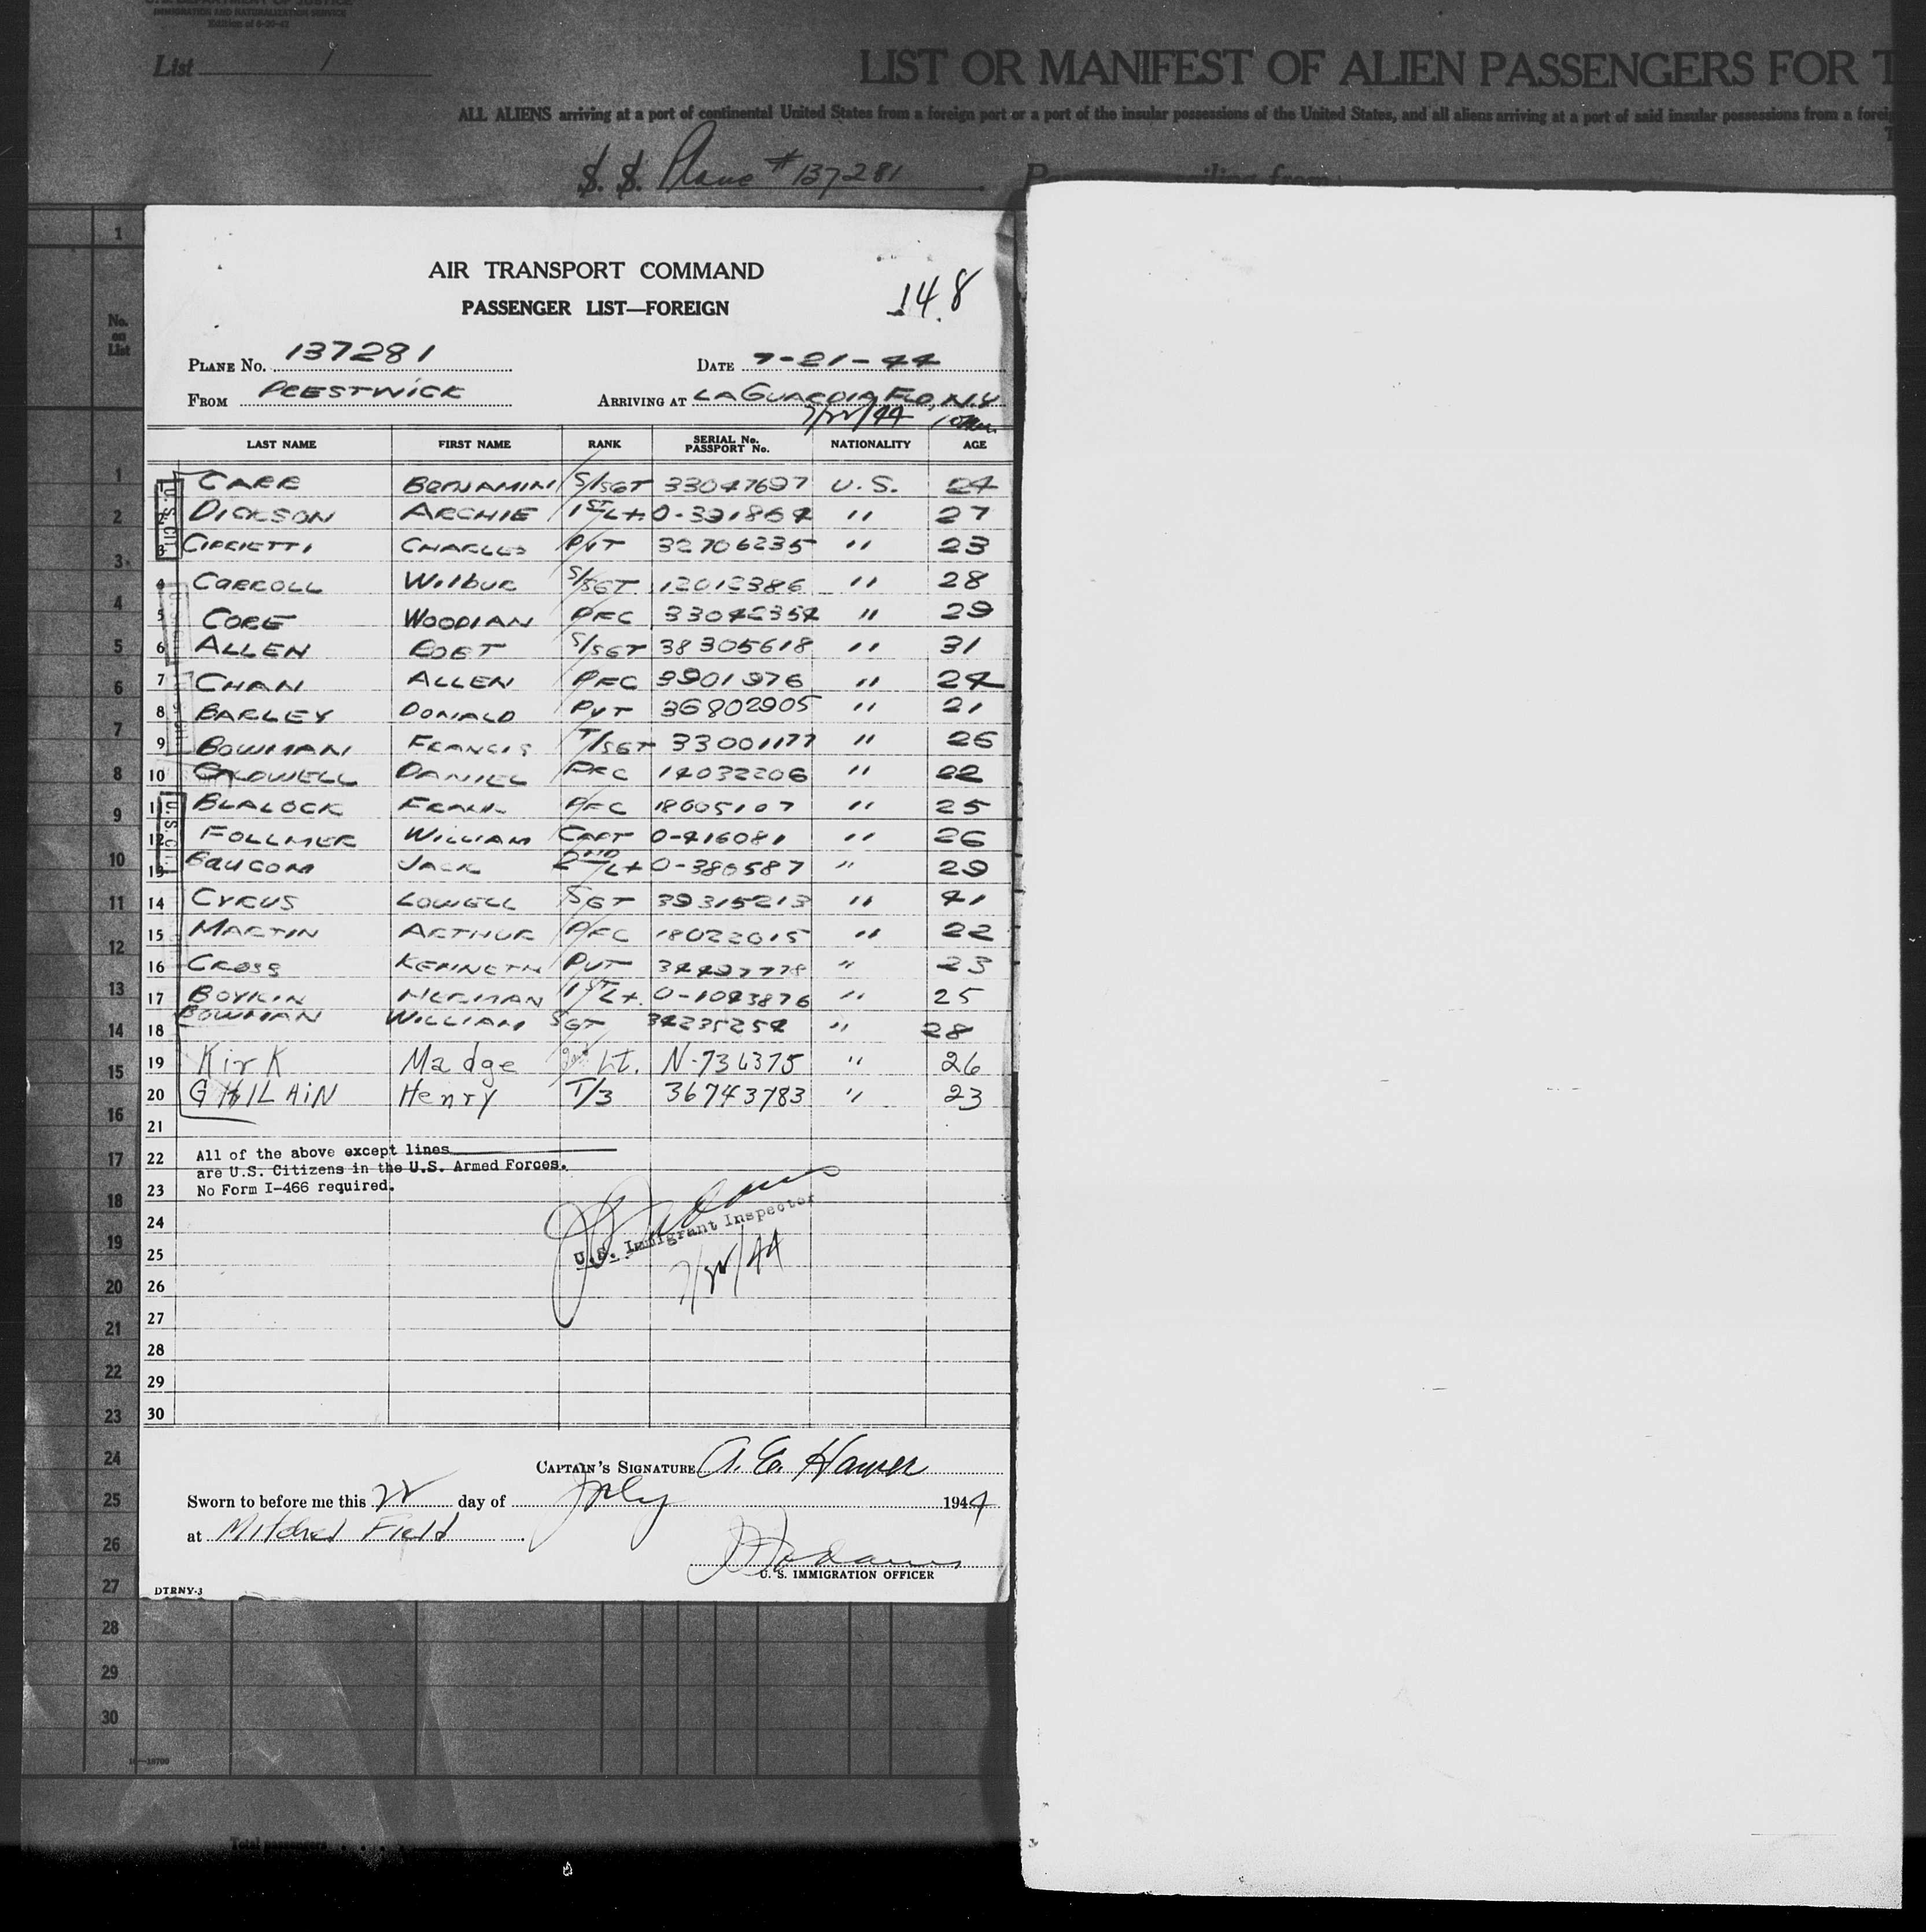 U.S. DEPARTMENT OF JUSTICE
IMMIGRATION AND NATURALIZATION SERVICE
List 1
LIST OR MANIFEST OF ALIEN PASSENGERS FOR T
ALL ALIENS arriving at a port of continental United States from a foreign port or a port of the insular possessions of the United States, and all aliens arriving at a port of said insular possessions from a foreig
S. S. Plane #137281
AIR TRANSPORT COMMAND
PASSENGER LIST—FOREIGN
148
PLANE NO. 137281 DATE 7-21-44
FROM PRESTWICK ARRIVING AT LAGUARDIA FLD, N.Y.
7/22/44
No. on List
LAST NAME FIRST NAME RANK SERIAL No. PASSPORT No. NATIONALITY AGE
1 CARR BENJAMIN S/SGT 33047697 U.S. 24
2 DICKSON ARCHIE 1ST LT 0-391864 " 27
3 CIPRIETTI CHARLES PVT 32706235 " 23
4 CARROLL WILBUR S/SGT 12012386 " 28
5 CORE WOODIAN PFC 33042354 " 29
6 ALLEN ROBT S/SGT 38305618 " 31
7 CHAN ALLEN PFC 3901976 " 24
8 BARLEY DONALD PVT 36802905 " 21
9 BOWMAN FRANCIS T/SGT 33001177 " 26
10 CALDWELL DANIEL PFC 14032206 " 22
11 BLALOCK FRANK PFC 18005107 " 25
12 FOLLMER WILLIAM CAPT 0-416081 " 26
13 BAUCOM JACK 2ND LT 0-380587 " 29
14 CYRUS LOWELL SGT 39315213 " 41
15 MARTIN ARTHUR PFC 18022015 " 22
16 CROSS KENNETH PVT 34497778 " 23
17 BOYKIN HERMAN 1ST LT. 0-1043876 " 25
18 BOWMAN WILLIAM SGT 34235254 " 28
19 Kirk Madge 2nd Lt. N-736375 " 26
20 GHILAIN Henry T/3 36743783 " 23
21
22 All of the above except lines
are U.S. Citizens in the U.S. Armed Forces.
23 No Form I-466 required.
24
U.S. Immigrant Inspector
25
7/22/44
26
27
28
29
30
CAPTAIN'S SIGNATURE A. E.
Sworn to before me this 22 day of July 1944
at Mitchel Field
U. S. IMMIGRATION OFFICER
DTRNY-3
1
2
3
4
5
6
7
8
9
10
11
12
13
14
15
16
17
18
19
20
21
22
23
24
25
26
27
28
29
30
Total passengers